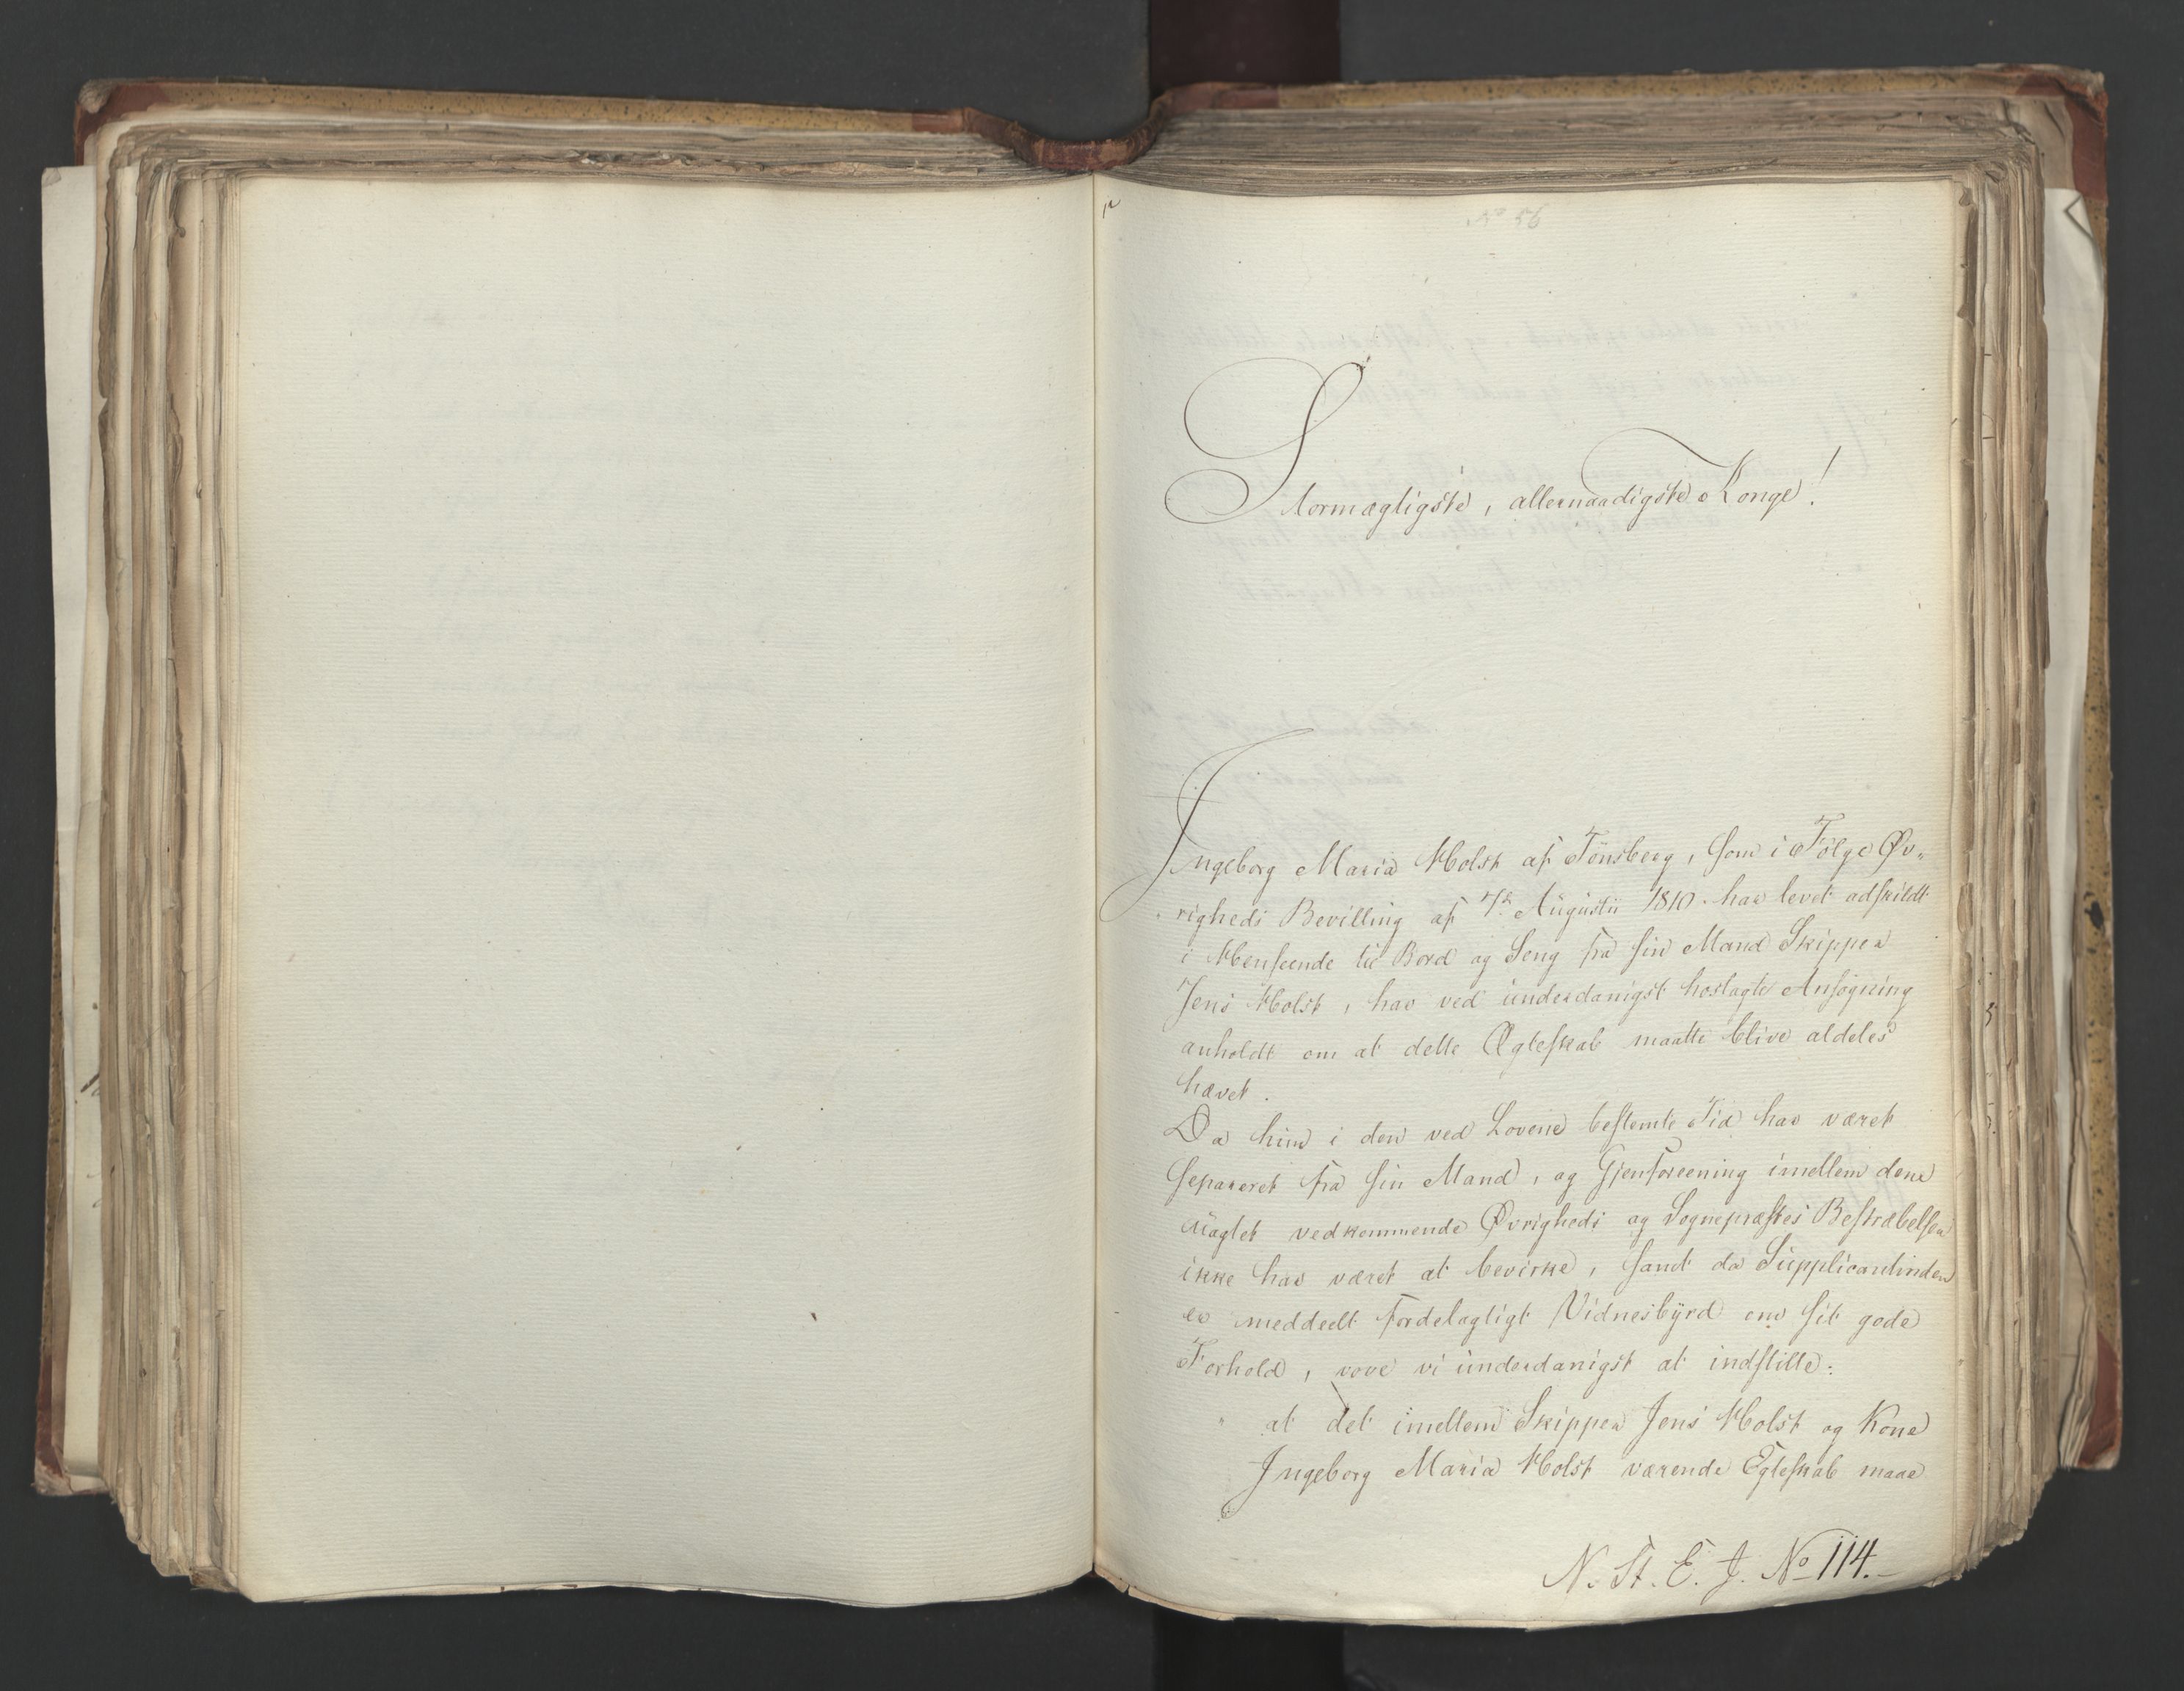 No 56
Stormægtigste, allernaadigste Konge!
Ingeborg Maria Holst af Tönsberg, som i Fölge Øv„
righeds Bevilling af 7de Augustii 1810 har levet adskildt
i Henseende til Bord og Seng fra sin Mand Skipper
Jens Holst, har ved underdanigst hoslagte Ansøgning
anholdt om at dette Ægteskab maatte blive aldeles
hævet.
Da hun i den ved Lovene bestemte Tid har været
separeret fra sin Mand, og Gjenforeening imellem dem
uagtet vedkommende Øvrigheds og Sognepræstes Bestræbelser
ikke har været at bevirke, samt da Supplicantinden
er meddeelt fordelagtigt Vidnesbyrd om sit gode
Forhold, vove vi underdanigst at indstille:
at det imellem Skipper Jens Holst og Kone
Ingeborg Maria Holst værende Egteskab maae
N. St. E. J. No 114.